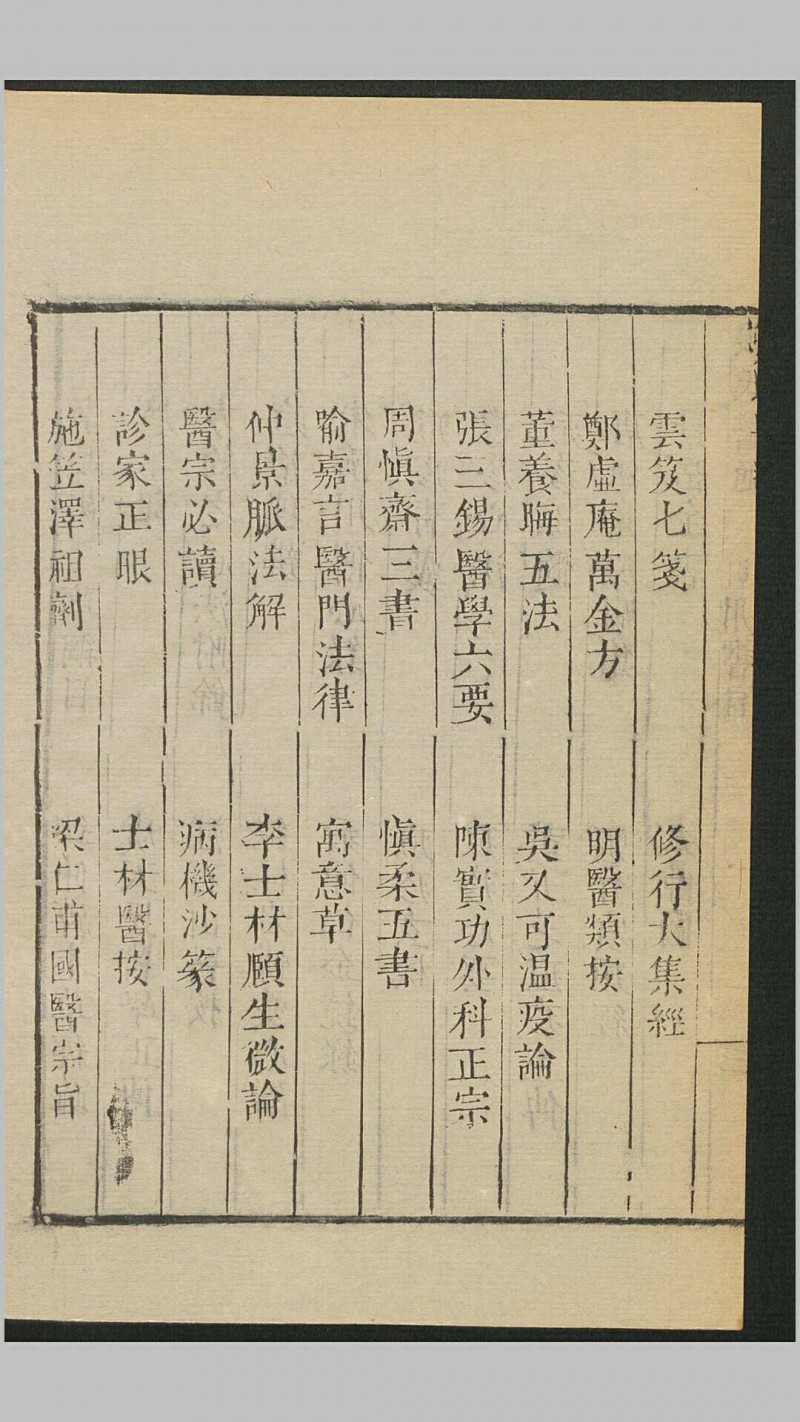 雲笈七箋　修行大集經
鄭虛庵萬金方　明醫類按
董養晦五法　吳又可温疫論
張三錫醫學六要　陳實功外科正宗
周慎齋三書　慎柔五書
喻嘉言醫門法律　寓意草
仲景脈法解　李士材頤生微論
醫宗必讀　病機沙篆
診家正眼　士材醫按
施笠澤祖劑　梁仁甫國醫宗旨